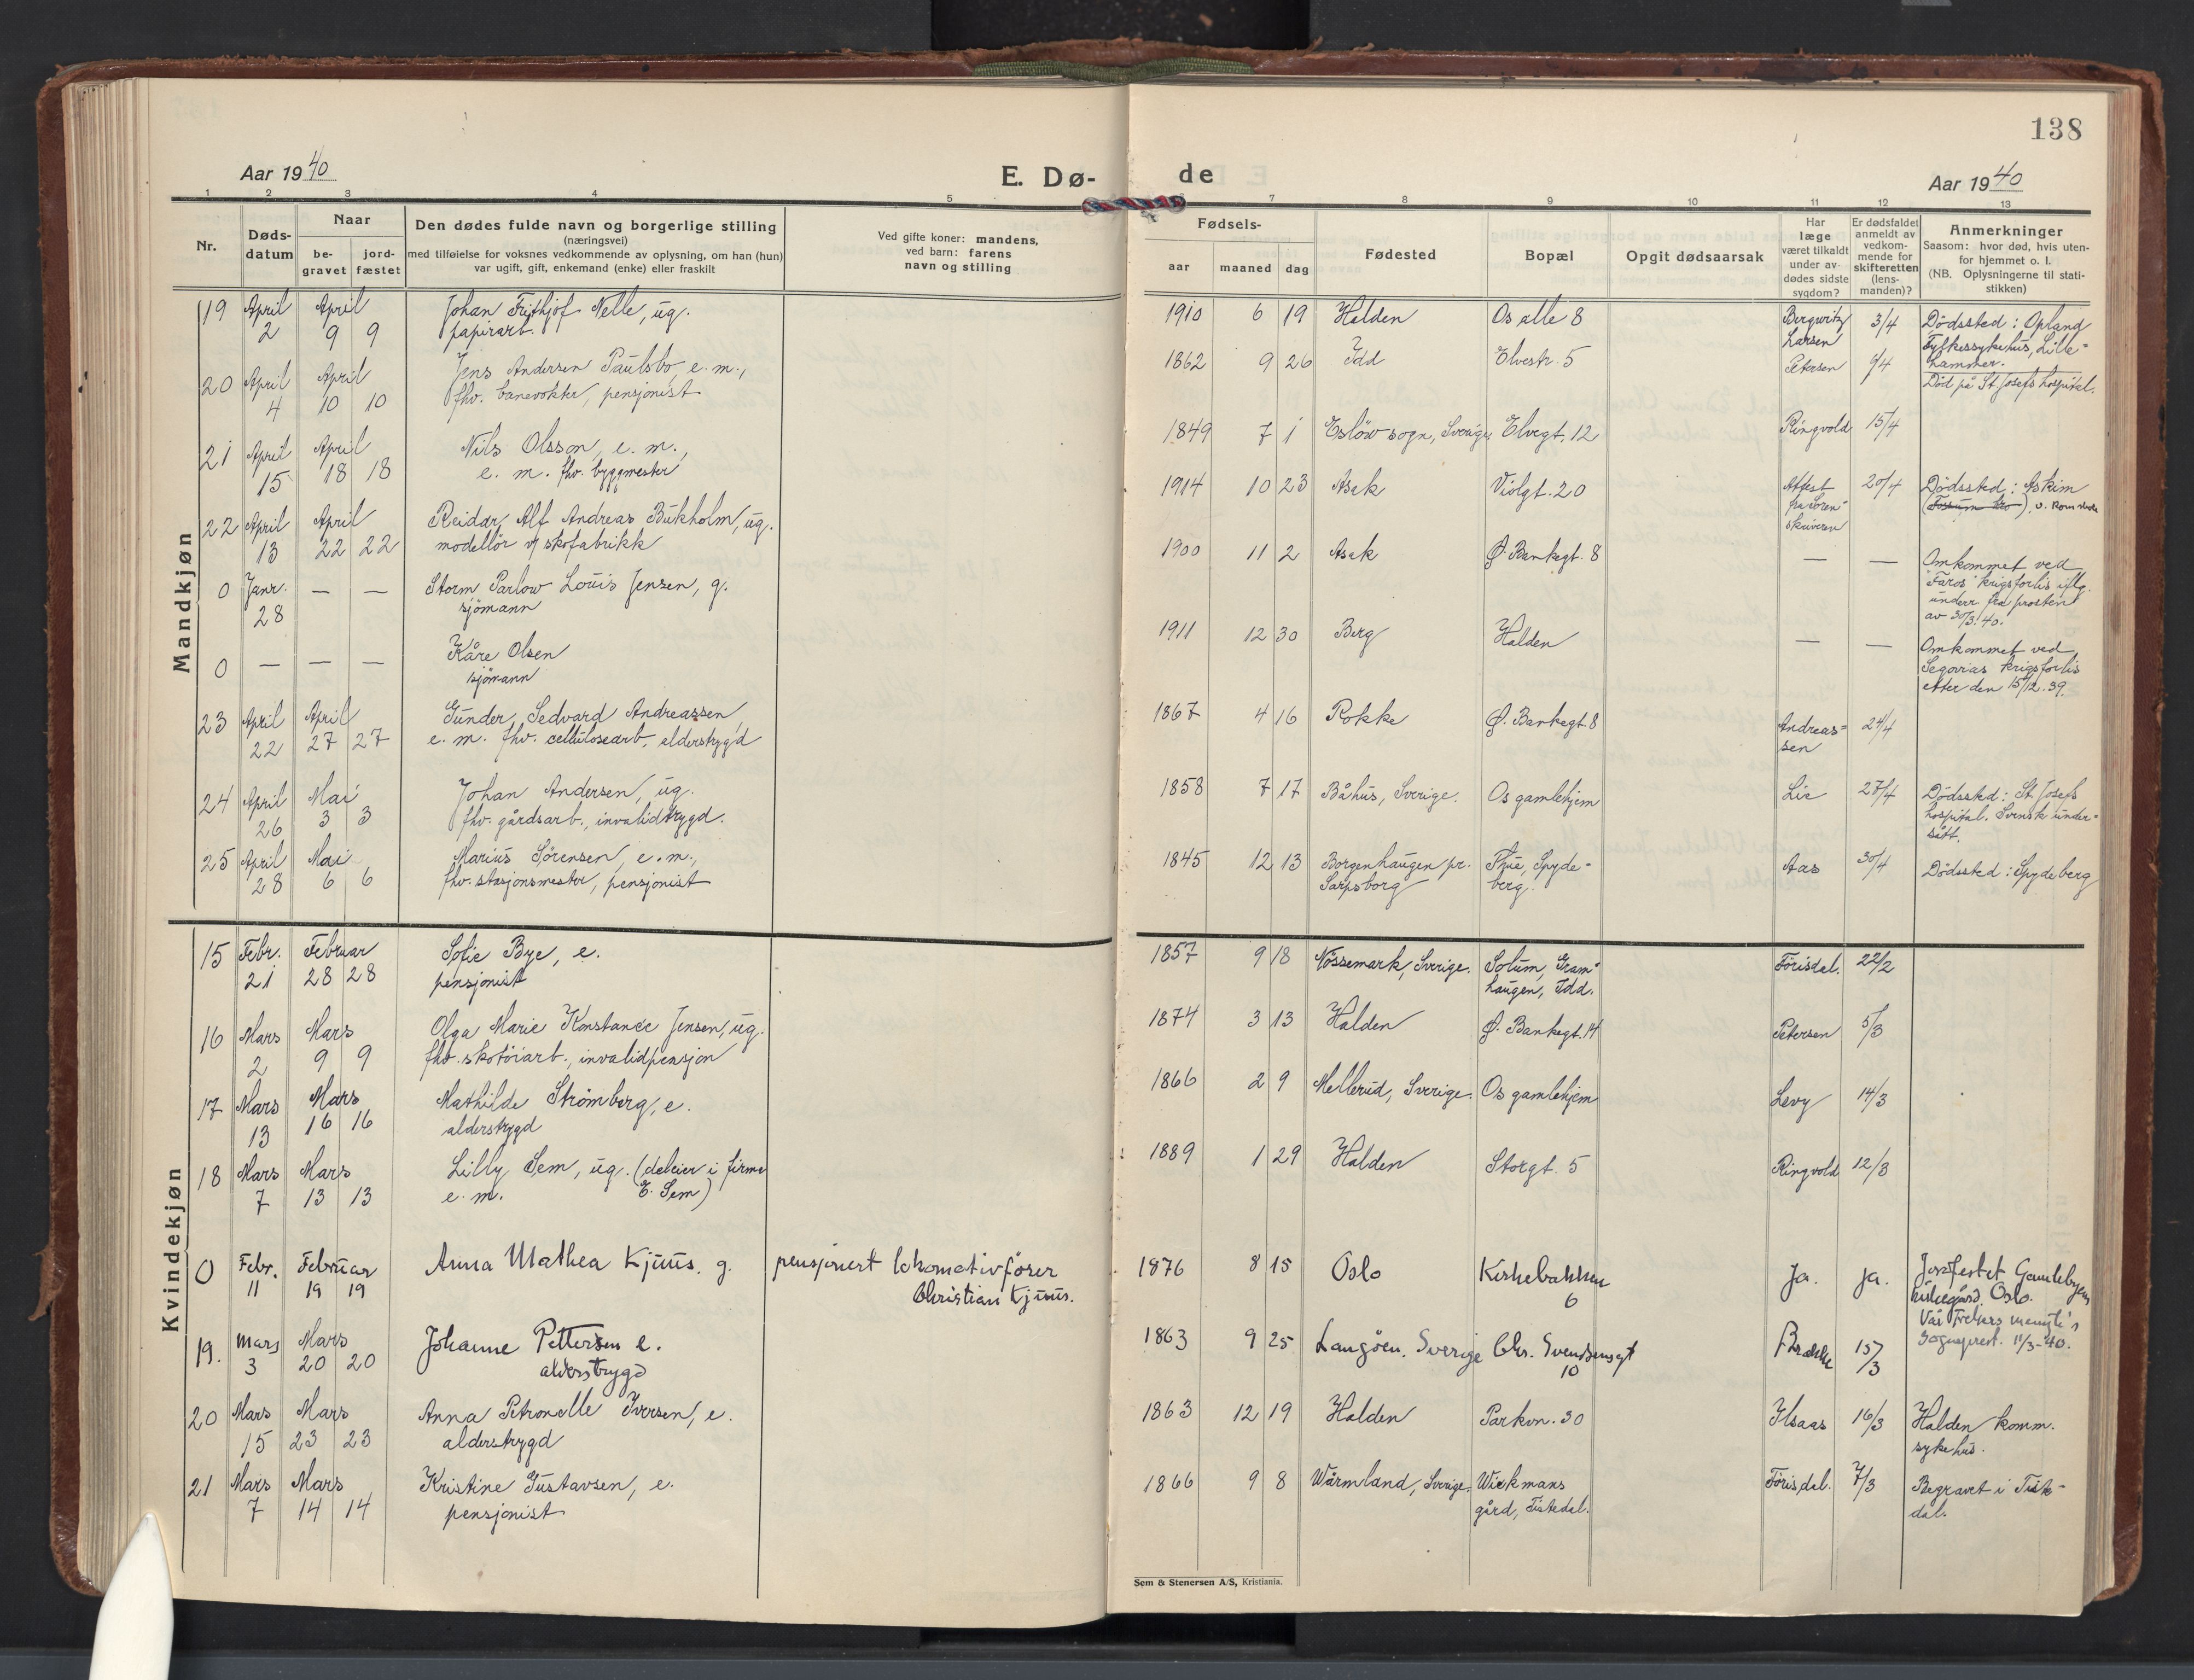 138
Aar 1940
E. Dø-
de
Aar 1940
1 2 3 4 5 7 8 9 10 11 12 13
Nr.
Døds-
datum
Naar
be-
gravet
jord-
fæstet
Den dødes fulde navn og borgerlige stilling
(næringsvei)
med tilføielse for voksnes vedkommende av oplysning, om han (hun)
var ugift, gift, enkemand (enke) eller fraskilt
Ved gifte koner: mandens,
ved barn: farens
navn og stilling
Fødsels-
aar maaned dag
Fødested
Bopæl
Opgit dødsaarsak
Har
læge
været tilkaldt
under av-
dødes sidste
sygdom?
Er dødsfaldet
anmeldt av
vedkom-
mende for
skifteretten
(lens-
manden)?
Anmerkninger
Saasom: hvor død, hvis uten-
for hjemmet o. l.
(NB. Oplysningerne til stati-
stikken)
Mandkjøn
19 April April Johan Frithjof Nelle, ug.
2 9 9 papirarb.
1910 6 19 Halden Os alle 8 Bergwitz 3/4 Dödssted: Opland
Larsen Fylkessykehus, Lille-
hammer.
20 April April Jens Andersen Paulsbo, e.m.,
4 10 10 fhv. banevokter, pensjonist
1862 9 26 Idd Elvestr. 5 Petersen 9/4
Död på St. Josefs hospital.
21 April April Nils Olsson, e. m.,
15 18 18 e. m. fhv. byggmester
1849 7 1 Eslöw sogn, Sverige Elvegt. 12 Ringvold 15/4
22 April April Reidar, Alf Andreas Bukholm, ug.
13 22 22 modellör v/ skofabrikk
1914 10 23 Asak Violgt. 20 Attest 20/4 Dödssted: Askim
fra Soren- (Fossum bro),
skriveren
0 Janr. — — Storm Parlow Louis Jensen, g.
28 sjömann
1900 11 2 Asak Ø. Bankegt. 8 — — Omkommet ved
"Faros" krigsforlis iflg.
underr. fra prosten
av 30/3.40.
0 — — — Kåre Olsen
sjömann
1911 12 30 Berg Halden — — Omkommet ved
Segovias krigsforlis
etter den 15/12.39.
23 April April Gunder Sedvard Andreassen
22 27 27 e. m. fhv. cellulosearb., alderstrygd
1867 4 16 Rokke Ø. Bankegt. 8 Andreas- 24/4
sen
24 April Mai Johan Andersen, ug.
26 3 3 fhv. gårdsarb., invalidtrygd.
1858 7 17 Båhus, Sverige. Os gamlehjem Lie 27/4 Dödssted: St. Josefs
hospital. Svensk under-
sått.
25 April Mai Marius Sørensen, e.m.,
28 6 6 fhv. stasjonsmester, pensjonist
1845 12 13 Borgenhaugen pr. Thue, Spyde- Aas 30/4 Dödssted: Spydeberg
Sarpsborg berg.
Kvindekjøn
15 Febr. Februar Sofie Bye, e.
21 28 28 pensjonist
1857 9 18 Nössemark, Sverige. Solum, Gram- Förisdal. 22/2
haugen, Idd.
16 Mars Mars Olga Marie Konstance Jensen, ug.
2 9 9 fhv. skotöiarb., invalidpensjon
1874 3 13 Halden Ø. Bankegt. 14 Petersen 5/3
17 Mars Mars Mathilde Strömberg, e.
13 16 16 alderstrygd
1866 2 9 Mellerud, Sverige. Os gamlehjem Levy 14/3
18 Mars Mars Lilly Sem, ug. (deleier i firma
7 13 13 e. m. E. Sem)
1889 1 29 Halden Storgt. 5 Ringvold 12/3
0 Febr. Februar Anna Mathea Kjuus. g. pensjonert lokomotivfører
11 19 19 Christian Kjuus.
1876 8 15 Oslo Kirkebakken Ja. ja. Jordfestet Gamlebyens
6 kirkegård. Oslo.
Vår Frelsers menigh.'s
sogneprest. 11/3-40.
19. Mars Mars Johanne Pettersen e.
3 20 20 alderstrygd
1863 9 25 Langöen. Sverige Chr. Svendsensgt Brække 15/3
10
20 Mars Mars Anna Petronelle Iversen, e.
15 23 23 alderstrygd
1863 12 19 Halden Parkvn. 30 Ilsaas 16/3 Halden komm.
sykehus.
21 Mars Mars Kristine Gustavsen, e.
7 14 14 pensjonist
1866 9 8 Wärmland, Sverige. Wiekmans Förisdal. 7/3 Begravet i Tiste-
gård, Tistedal. dal.
Sem & Stenersen A/S, Kristiania.